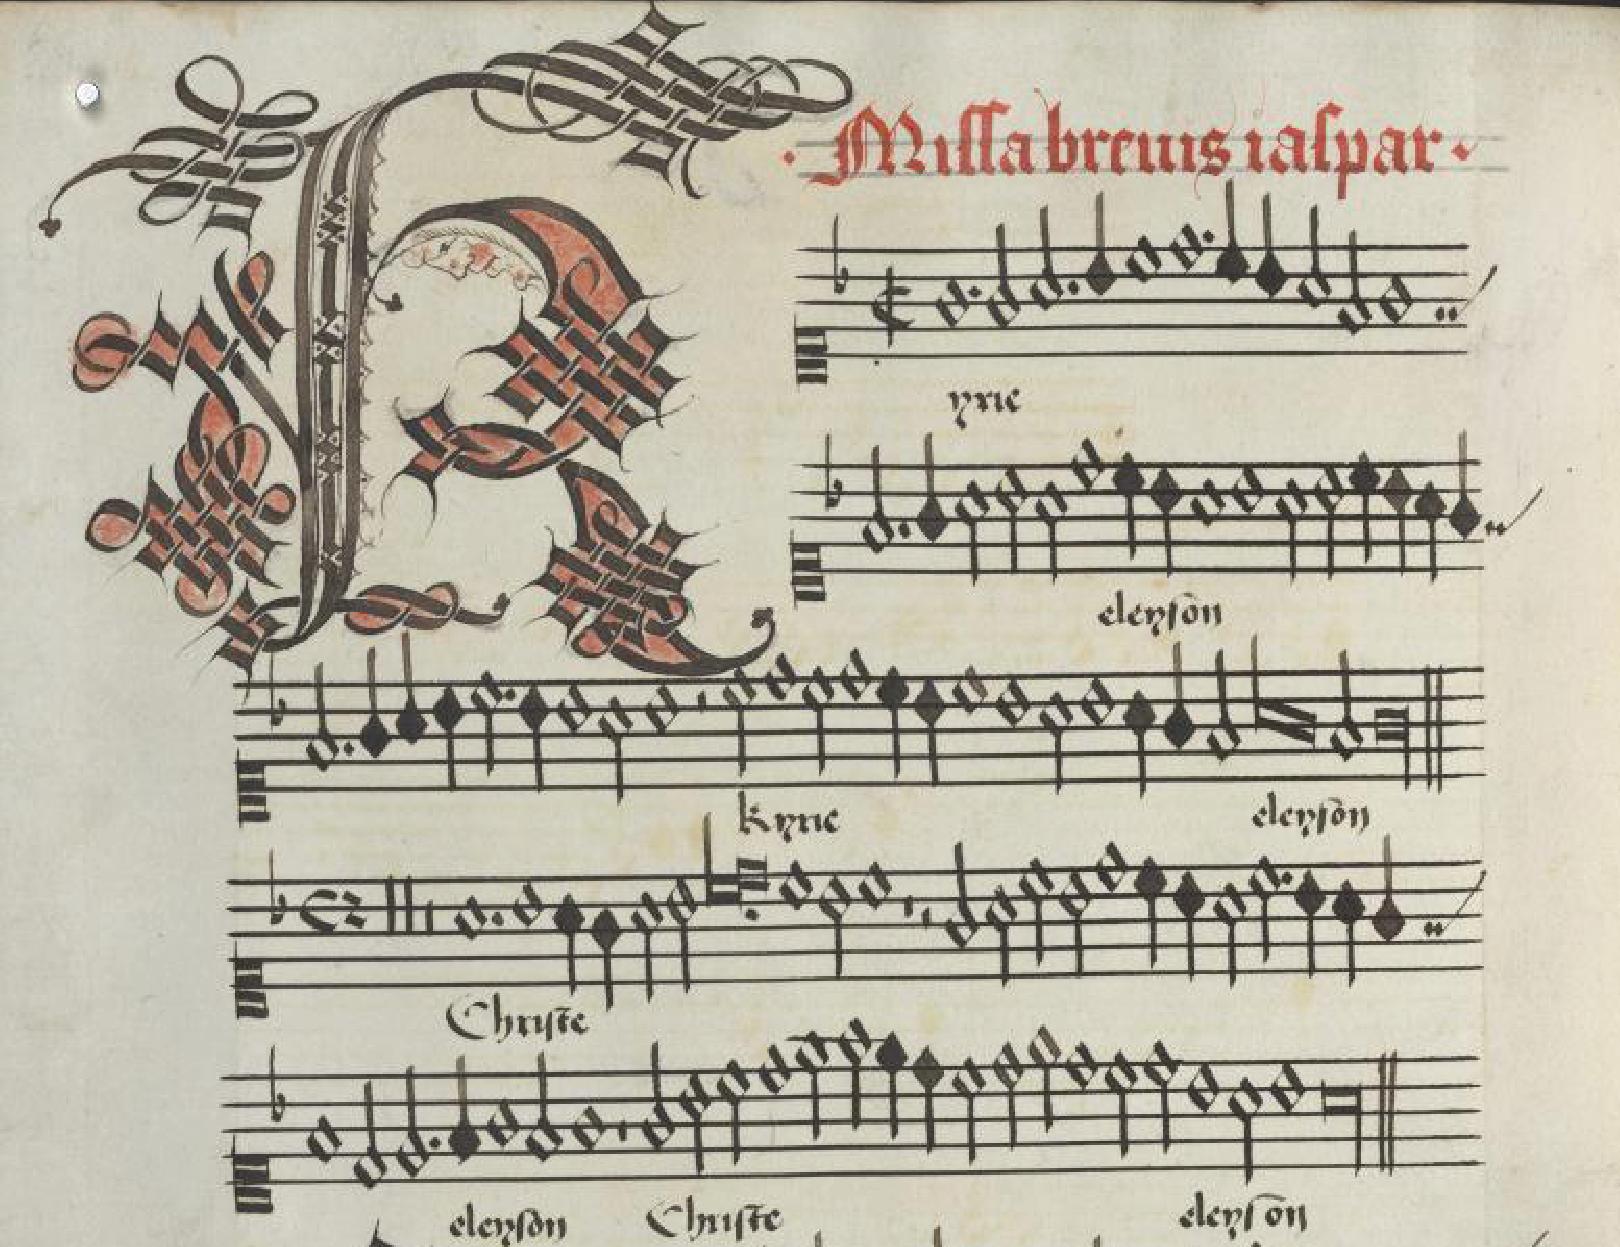 K
· Missa breuis iaspar ·
yrie
eleyson
kyrie eleyson
Christe
eleyson Christe eleyson